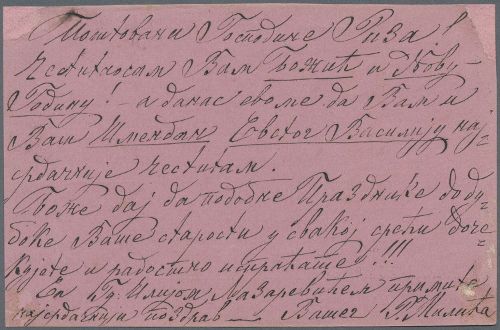 Поштовани Господине Риза!
Честитосам Вам Божић и Нову-
Годину! – а данас евоме да Вам и
Ваш Имендан Евстог Василију нај-
срдачније честитам.
Боже дај да подобне Празднике до ду-
боке Ваше старости у свакој срећи доче-
кујете и радостно испраћате!!!
Са Гд. Илијом Лазаревићем примите
најсрдачнији поздрав — Вашег